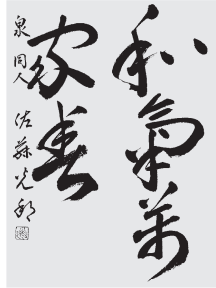 和氣萬
家春
泉同人 佐藤光郎